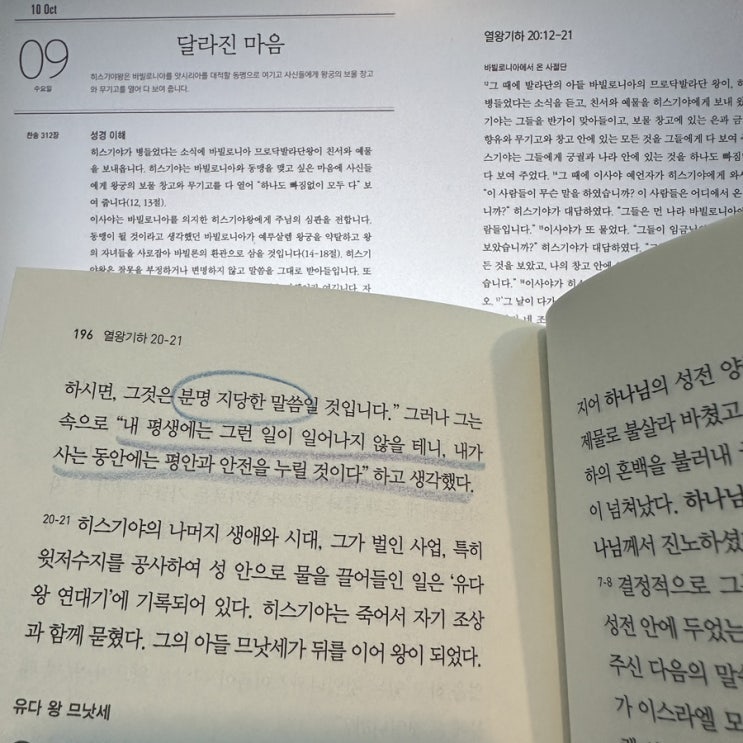 10 Oct
09
수요일
달라진 마음
히스기야왕은 바빌로니아를 앗시리아를 대적할 동맹으로 여기고 사신들에게 왕궁의 보물 창고
와 무기고를 열어 다 보여 줍니다.
찬송 312장
성경 이해
히스기야가 병들었다는 소식에 바빌로니아 므로닥발라단왕이 친서와 예물
을 보내옵니다. 히스기야는 바빌로니아와 동맹을 맺고 싶은 마음에 사신들
에게 왕궁의 보물 창고와 무기고를 다 열어 “하나도 빠짐없이 모두 다” 보
여 줍니다(12, 13절).
이사야는 바빌로니아를 의지한 히스기야왕에게 주님의 심판을 전합니다.
동맹이 될 것이라고 생각했던 바빌로니아가 예루살렘 왕궁을 약탈하고 왕
의 자녀들을 사로잡아 바빌론의 환관으로 삼을 것입니다(14-18절). 히스기
야왕은 잘못을 부정하거나 변명하지 않고 말씀을 그대로 받아들입니다. 또
열왕기하 20:12-21
바빌로니아에서 온 사절단
12그 때에 발라단의 아들 바빌로니아의 므로닥발라단 왕이,
병들었다는 소식을 듣고, 친서와 예물을 히스기야에게 보내
기야는 그들을 반가이 맞아들이고, 보물 창고에 있는 은과 금
향유와 무기고와 창고 안에 있는 모든 것을 그들에게 다 보여
스기야는 그들에게 궁궐과 나라 안에 있는 것을 하나도
다 보여 주었다. 14그 때에 이사야 예언자가 히스기야에게 와서
“이 사람들이 무슨 말을 하였습니까? 이 사람들은 어디에서 온
니까?” 히스기야가 대답하였다. “그들은 먼 나라 바빌로니아
람들입니다.” 15이사야가 또 물었다. “그들이 임금님의
보았습니까?” 히스기야가 대답하였다.
든 것을 보았고, 나의 창고 안에
습니다.” 16이사야가
오. 17‘그 날이 다가
196 열왕기하 20-21
하시면, 그것은 분명 지당한 말씀일 것입니다.” 그러나 그는
속으로 “내 평생에는 그런 일이 일어나지 않을 테니, 내가
사는 동안에는 평안과 안전을 누릴 것이다” 하고 생각했다.
20-21 히스기야의 나머지 생애와 시대, 그가 벌인 사업, 특히
윗저수지를 공사하여 성 안으로 물을 끌어들인 일은 ‘유다
왕 연대기’에 기록되어 있다. 히스기야는 죽어서 자기 조상
과 함께 묻혔다. 그의 아들 므낫세가 뒤를 이어 왕이 되었다.
유다 왕 므낫세
지어 하나님의 성전 양
제물로 불살라 바쳤고
하의 혼백을 불러내
이 넘쳐났다. 하나님
나님께서 진노하셨
7-8 결정적으로
성전 안에 두었는
주신 다음의 말
가 이스라엘 모